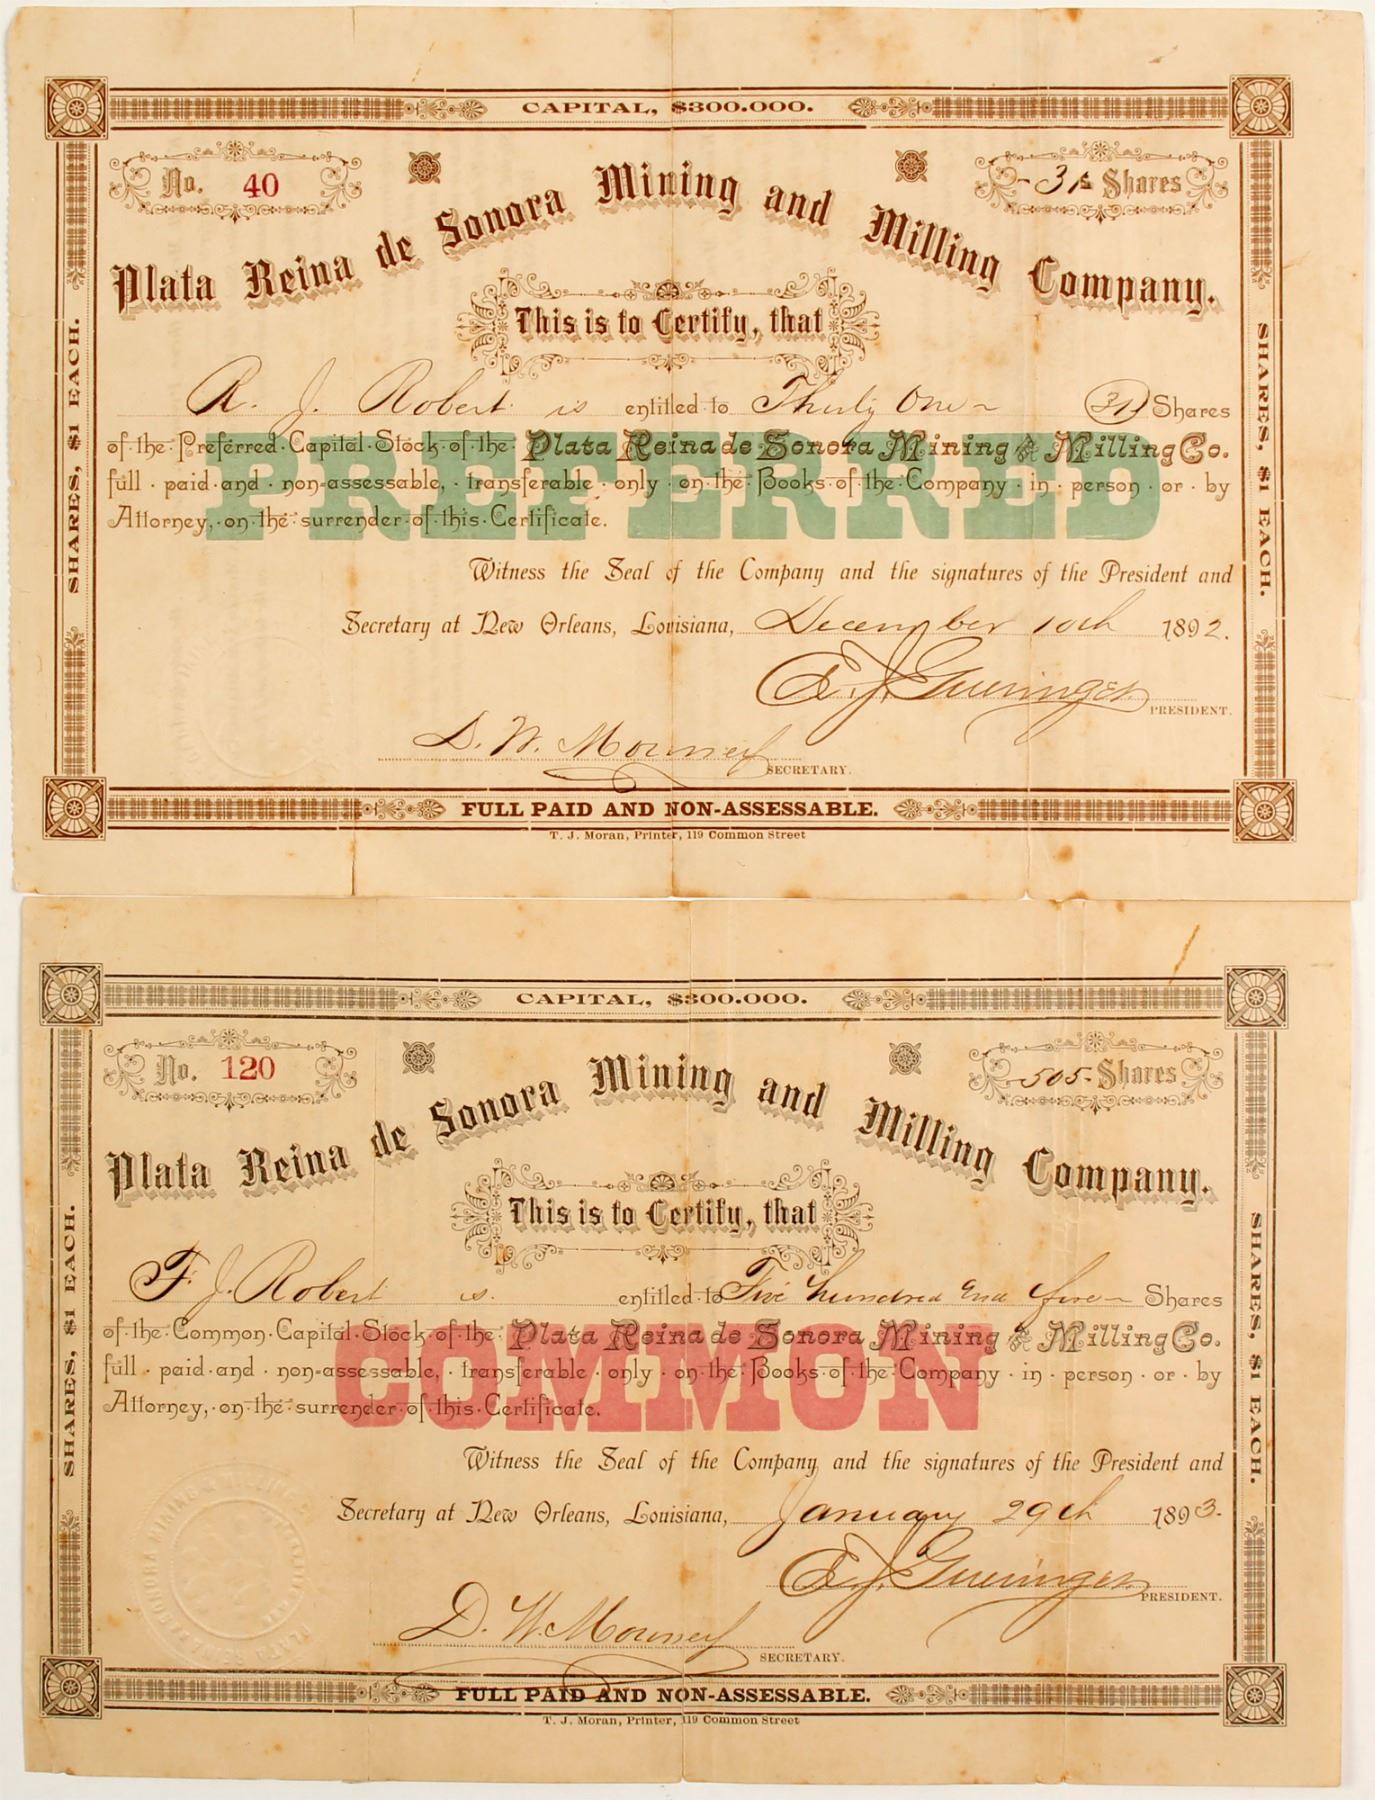 CAPITAL, $300.000.
No. 40
31 Shares
Plata Reina de Sonora Mining and Milling Company.
This is to Certify, that
R. J. Robert is entitled to Thirty One (31) Shares
of the Preferred Capital Stock of the Plata Reina de Sonora Mining & Milling Co.
PREFERRED
full paid and non-assessable, transferable only on the Books of the Company in person or by
Attorney, on the surrender of this Certificate.
Witness the Seal of the Company and the signatures of the President and
Secretary at New Orleans, Louisiana, December 10th 1892.
E. J. Gueringer
PRESIDENT.
D. W.
SECRETARY.
SHARES, $1 EACH.
SHARES, $1 EACH.
FULL PAID AND NON-ASSESSABLE.
T. J. Moran, Printer, 119 Common Street
CAPITAL, $300.000.
No. 120
505- Shares
Plata Reina de Sonora Mining and Milling Company.
This is to Certify, that
F. J. Robert is. entitled to Five hundred and five Shares
of the Common Capital Stock of the Plata Reina de Sonora Mining & Milling Co.
COMMON
full paid and non-assessable, transferable only on the Books of the Company in person or by
Attorney, on the surrender of this Certificate.
Witness the Seal of the Company and the signatures of the President and
Secretary at New Orleans, Louisiana, January 29th 1893.
E. J. Gueringer
PRESIDENT.
D. W.
SECRETARY.
SHARES, $1 EACH.
SHARES, $1 EACH.
FULL PAID AND NON-ASSESSABLE.
T. J. Moran, Printer, 119 Common Street